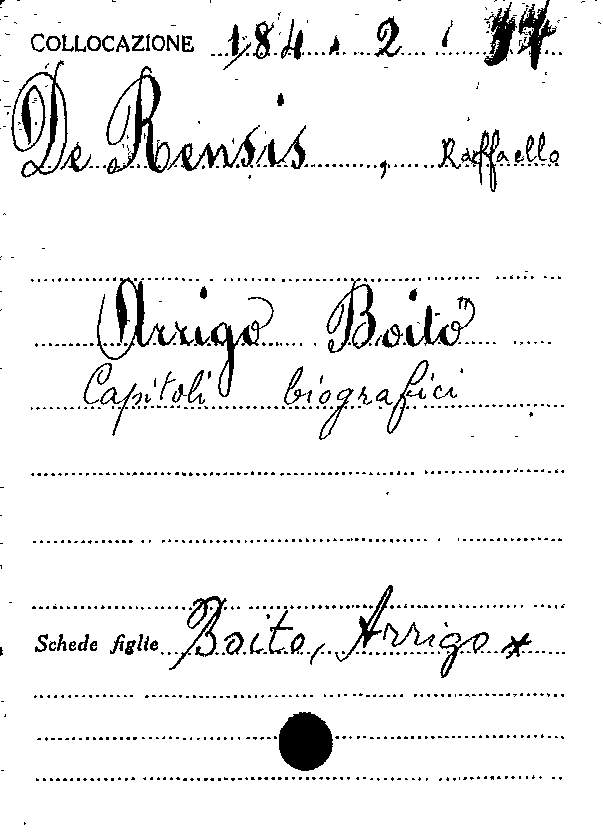 COLLOCAZIONE 184. 2.
De Rensis, Raffaello
Arrigo Boito
Capitoli biografici
Schede figlie Boito, Arrigo x